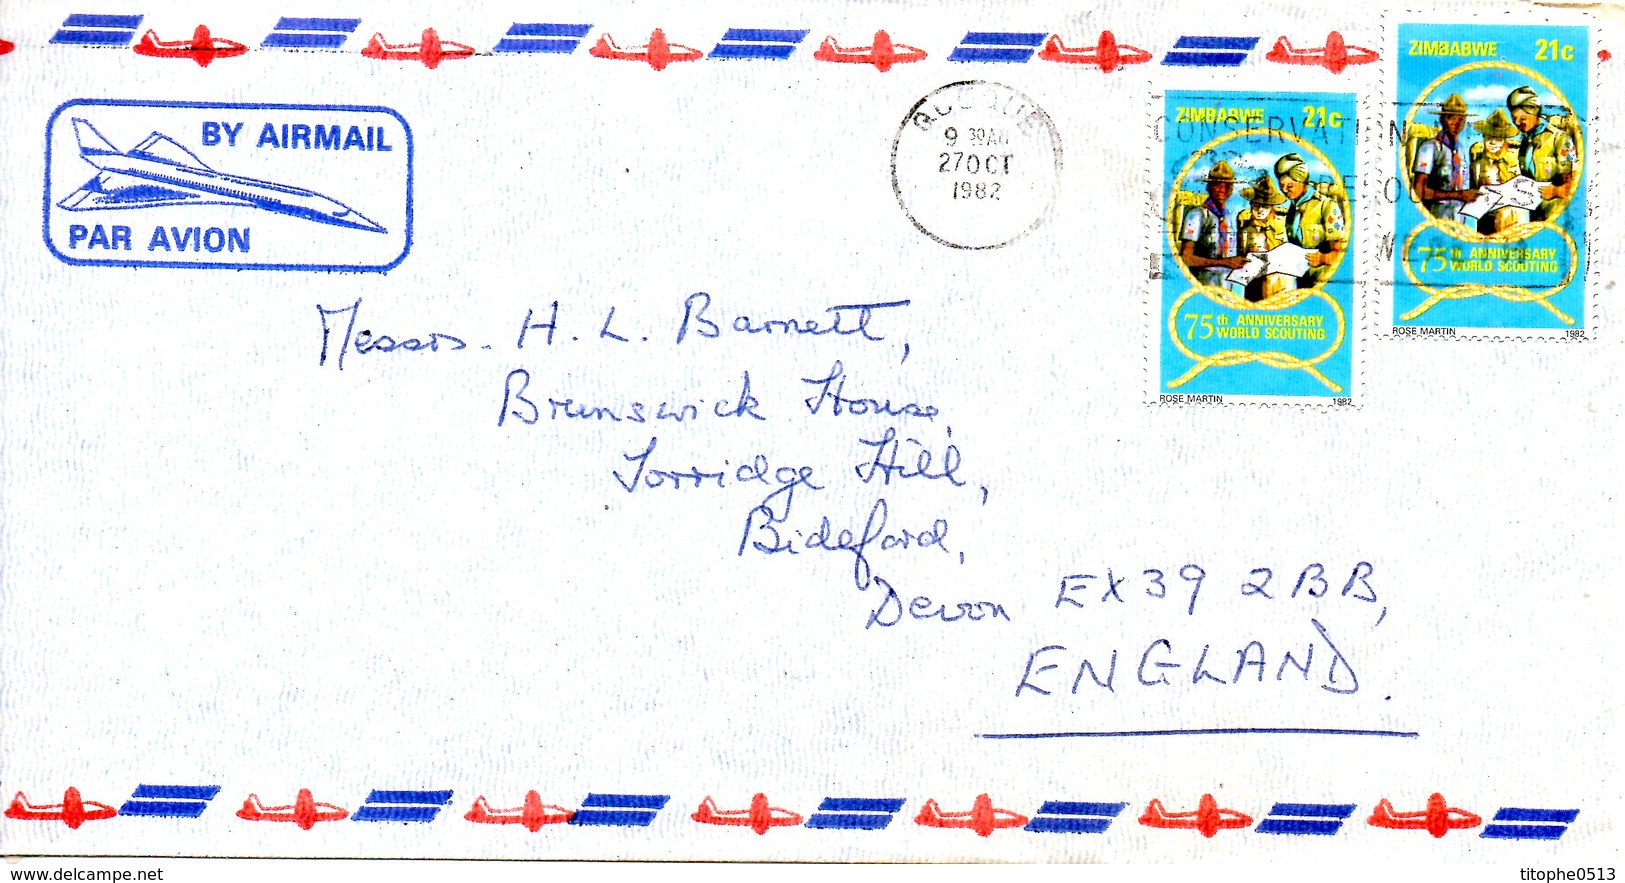 BY AIRMAIL
PAR AVION
9 30AM
27 OCT
1982
CONSERVATION
ZIMBABWE 21c
75th ANNIVERSARY
WORLD SCOUTING
ROSE MARTIN 1982
ZIMBABWE 21c
75th ANNIVERSARY
WORLD SCOUTING
ROSE MARTIN 1982
Messrs. H. L. Barnett,
Brunswick House,
Torridge Hill,
Bideford,
Devon EX39 2BB,
ENGLAND.
www.delcampe.net
titophe0513